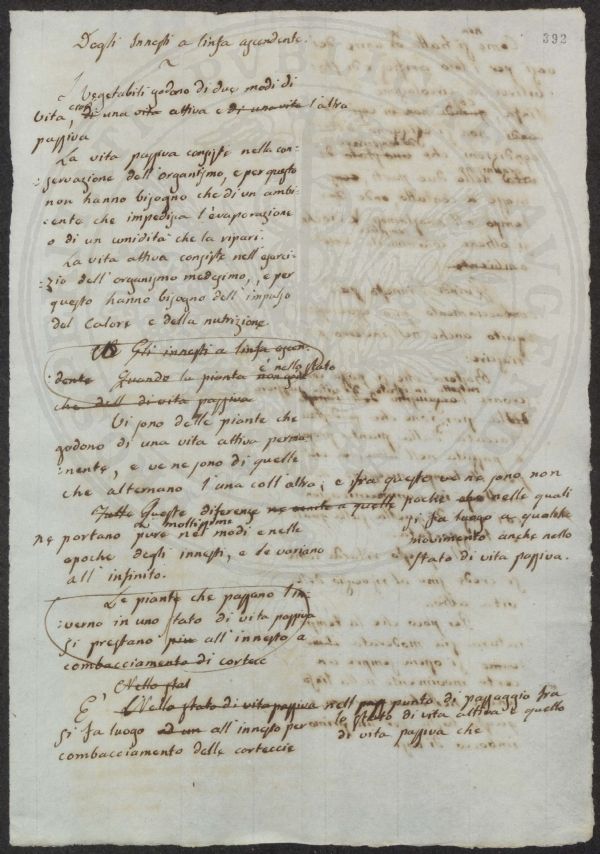 Degli Innesti a linfa ascendente.
392
I Vegetabili godono di due modi di
vita, cioè di una vita attiva e di una vita l'altra
passiva
La vita passiva consiste nella con-
:servazione dell'organismo, e per questo
non hanno bisogno che di un ambi-
:ente che impedisca l'evaporazione
o di un umidità che la ripari.
La vita attiva consiste nell'eserci-
:zio dell'organismo medesimo, e per
questo hanno bisogno dell'impulso
del Calore e della nutrizione.
Gli innesti a linfa ascen-
:dente Quando la pianta è nello stato
che dell di vita passiva
Vi sono delle piante che
godono di una vita attiva perma-
:nente, e ve ne sono di quelle
che alternano l'una coll'altra; e fra queste ve ne sono non
poche nelle quali
si fa luogo a qualche
movimento anche nello
stato di vita passiva.
Tutte Queste diference a quelle
ne portano pure dei moltissime nei modi e nelle
epoche degli innesti, e le variano
all'infinito.
Le piante che passano l'in-
:verno in uno stato di vita passiva
si prestano più all'innesto a
combacciamento di cortecc
Nello stat
E' Nello stato di vita passiva nell punto di passaggio fra
lo stato di vita attiva e quello
di vita passiva che
si fa luogo ad un all'innesto per
combacciamento delle corteccie